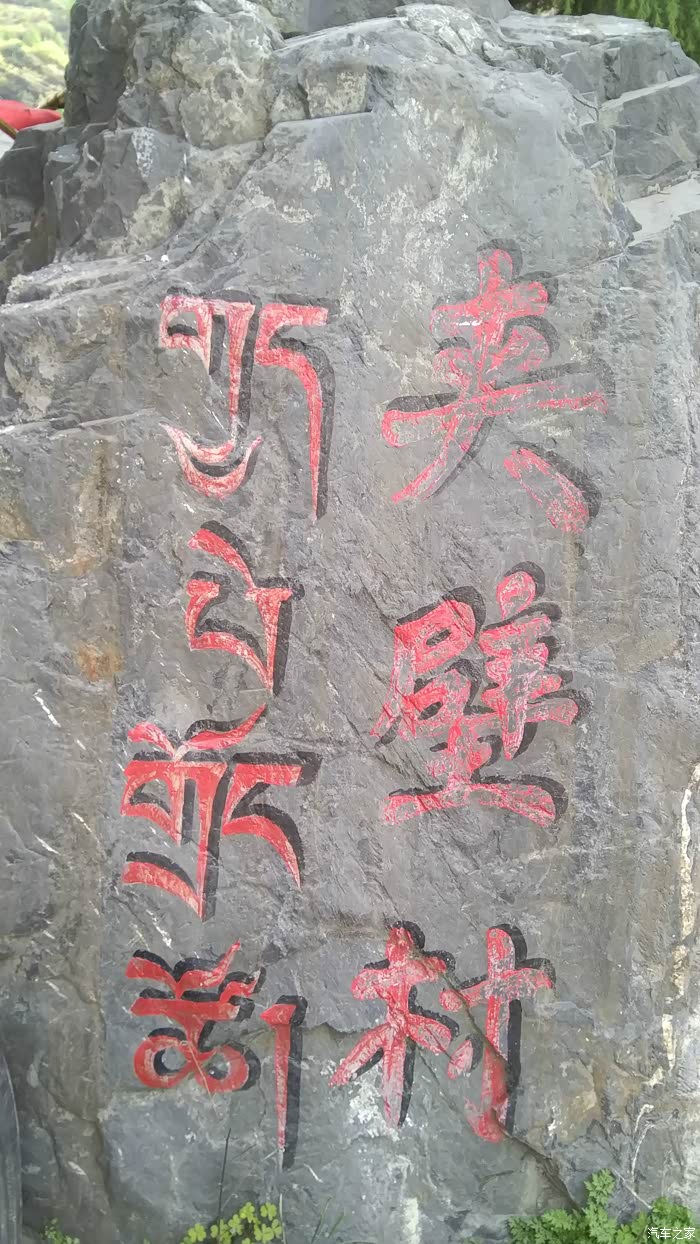 夹壁村
གུད
པེ
གྲོང
ཚོ།
汽车之家